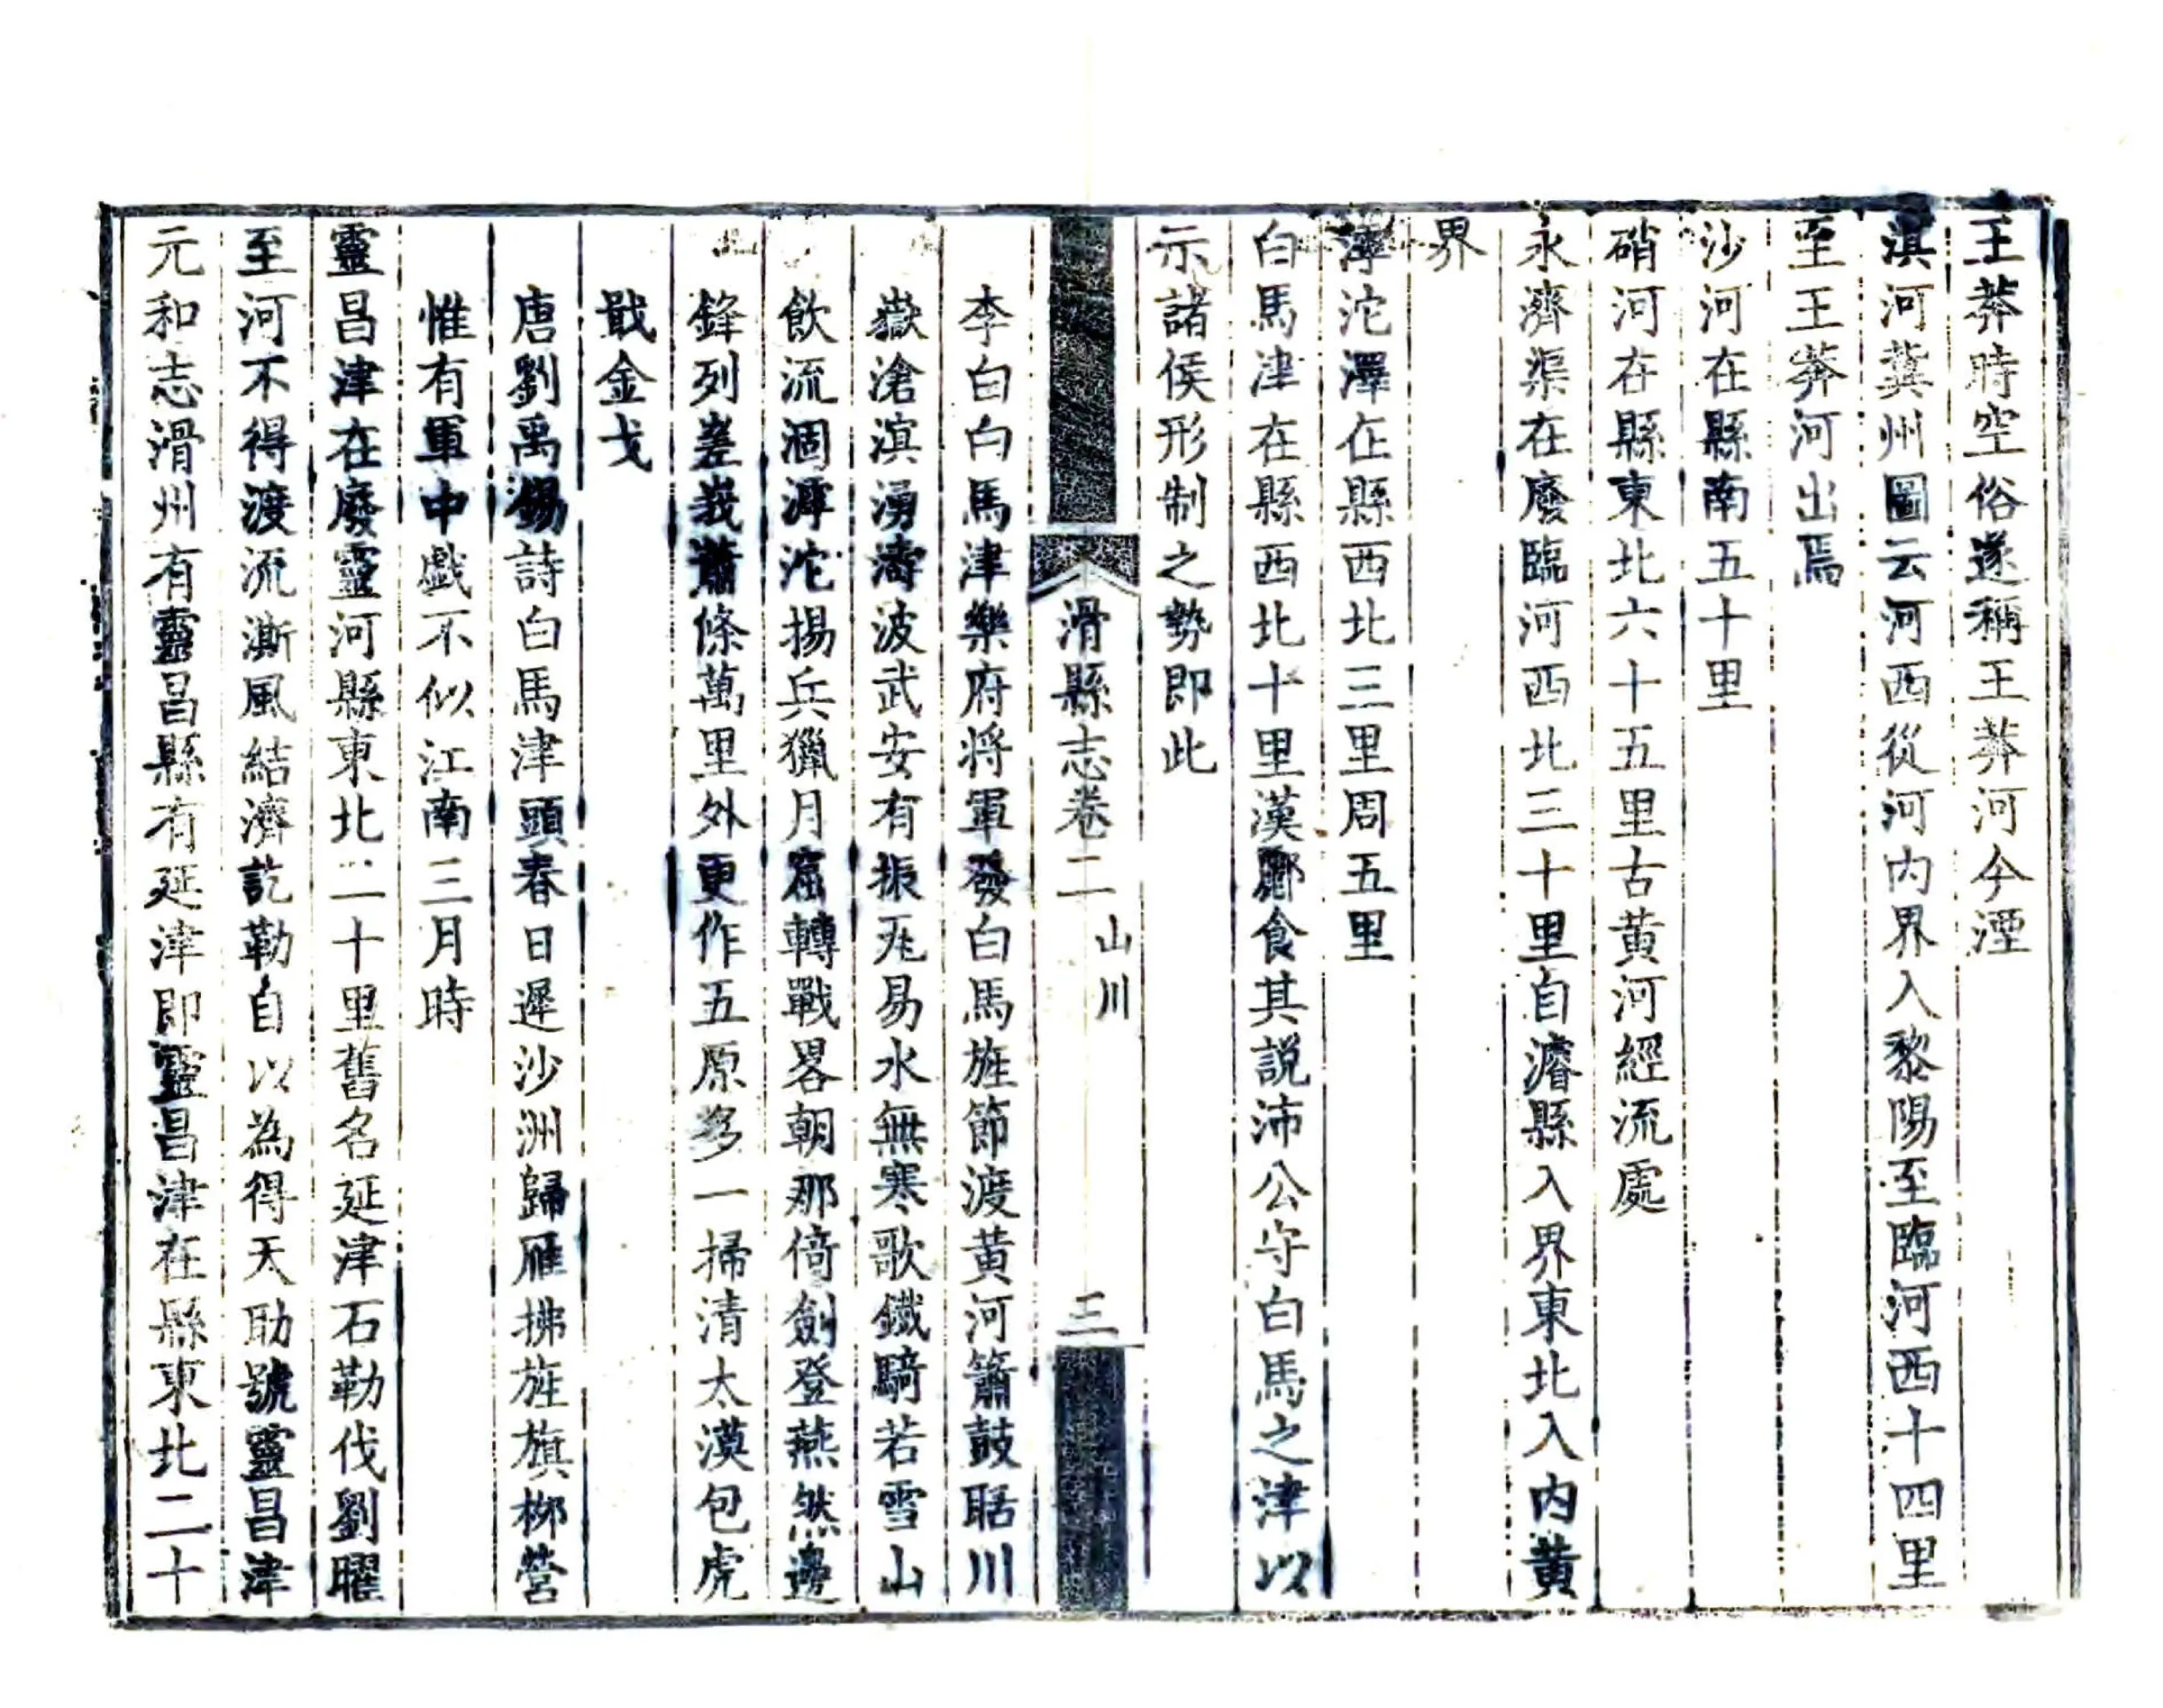 王莽時空俗遂稱王莽河今湮
淇河冀州圖云河西從河內界入黎陽至臨河西十四里
至王莽河出焉
沙河在縣南五十里
硝河在縣東北六十五里古黃河經流處
永濟渠在廢臨河西北三十里自濬縣入界東北入內黃
界
滹沱澤在縣西北三里周五里
白馬津在縣西北十里漢酈食其説沛公守白馬之津以
示諸侯形制之勢即此
滑縣志卷二 山川 三
李白白馬津樂府將軍發白馬旌節渡黃河簫鼓聒川
嶽滄溟湧濤波武安有振瓦易水無寒歌鐵騎若雪山
飲流涸滹沱揚兵獵月窟轉戰畧朝那倚劍登燕然邊
鋒列嵳峩蕭條萬里外更作五原多一掃清大漠包虎
戢金戈
唐劉禹錫詩白馬津頭春日遲沙洲歸雁拂旌旗栁營
惟有軍中戲不似江南三月時
靈昌津在廢靈河縣東北二十里舊名延津石勒伐劉曜
至河不得渡流澌風結濟訖勒自以為得天助號靈昌津
元和志滑州有靈昌縣有延津即靈昌津在縣東北二十